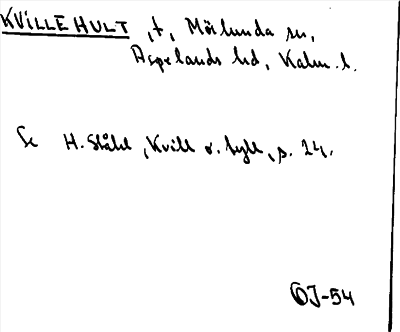 KVILLEHULT, t, Mörlunda sn,
Aspelands hd, Kalm. l.
Se H. Ståhl, Kvill o. Tyll, p. 24.
OJ-54